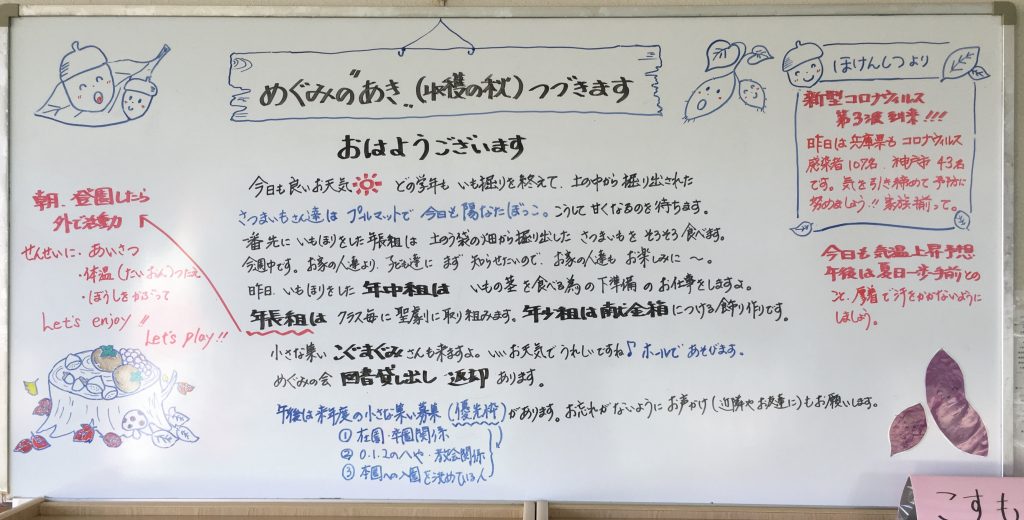 めぐみの"あき"(収穫の秋)つづきます
おはようございます
今日も良いお天気 どの学年も いも掘りを終えて、土の中から掘り出された
さつまいもさん達は プルマットで 今日も陽なたぼっこ。こうして甘くなるのを待ちます。
一番先にいもほりをした年長組は 土のう袋の畑から掘り出した さつまいもを そろそろ食べます。
今週中です。お家の人達より、子ども達に まず 知らせたいので、お家の人達も お楽しみに 〜。
昨日、いもほりをした 年中組は いもの茎を食べる為の下準備のお仕事をしますよ。
年長組は クラス毎に聖劇に取り組みます。年少組は献金箱につける飾り作りです。
小さな集い こぐまぐみさんも来ますよ。いいお天気でうれしいですね♪ ホールであそびます。
めぐみの会 図書貸し出し 返却 あります。
午後は来年度の小さな集い募集(優先枠)があります。お忘れがないようにお声かけ(近隣やお友達に)もお願いします。
① 在園・卒園関係
② 0.1.2のへや・教会関係
③ 本園への入園を決めている人
朝、登園したら
外で活動
せんせいに・あいさつ
・体温(たいおん)つたえ
・ぼうしをかぶって
Let's enjoy!!
Let's play!!
ほけんしつより
新型コロナウィルス
第3波到来!!!
昨日は兵庫県も コロナウィルス
感染者107名、神戸市43名
です。気を引き締めて予防に
努めましょう!! 家族揃って。
今日も気温上昇予想
午後は夏日一歩手前との
こと、厚着で汗をかかないように
しましょう。
こすも